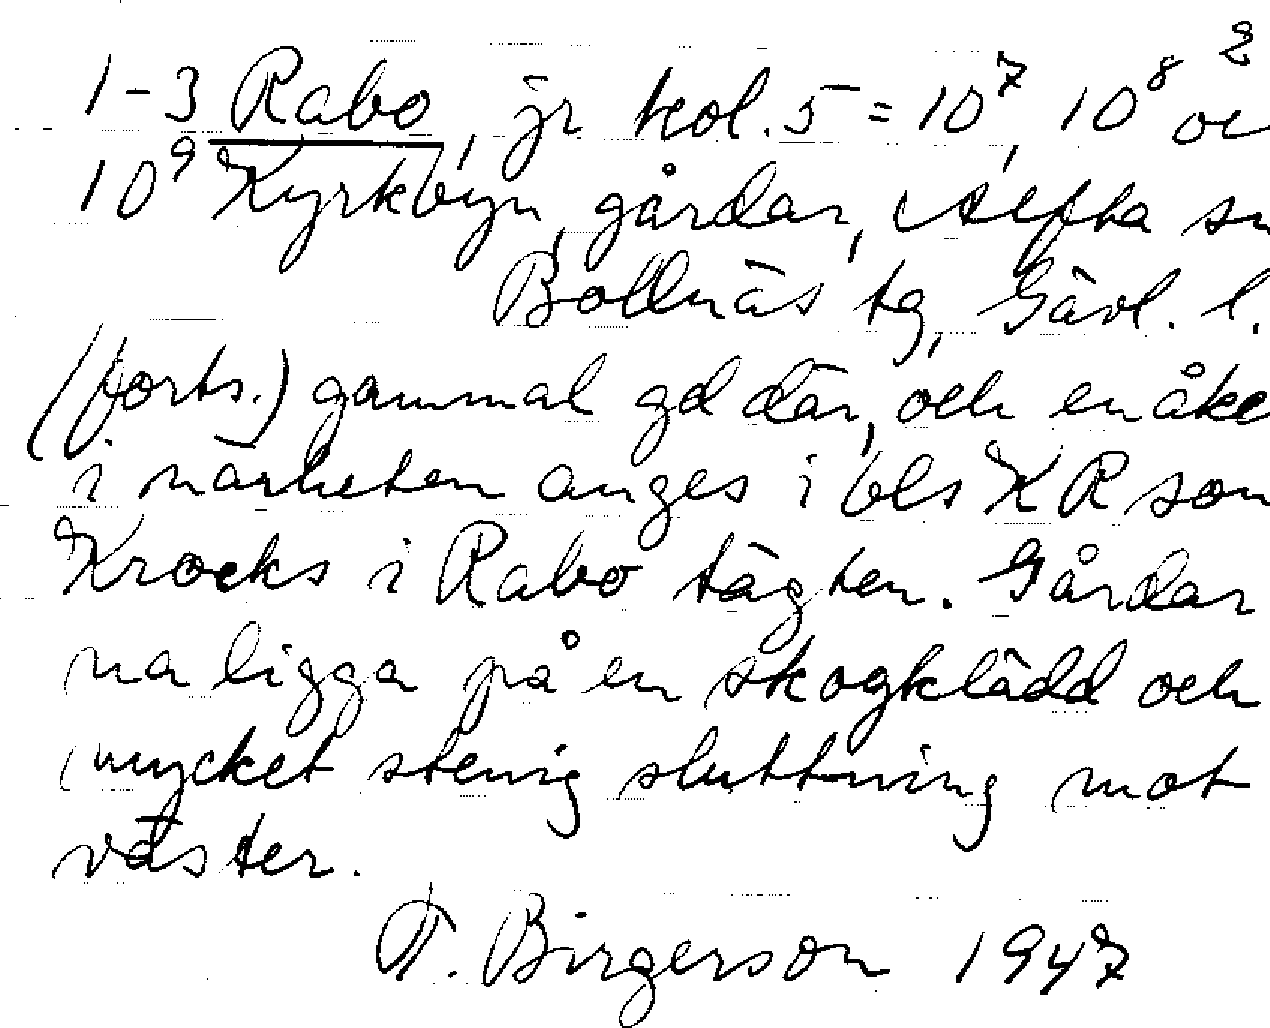 2
1-3 Rabo, jr kol. 5 = 10⁷, 10⁸ oc
10⁹ Kyrkbyn, gårdar, Alfta sn
Bollnäs tg, Gävl. l.
(forts.) gammal gd där, och en åke
i närheten anges i bls KR som
Krocks i Rabo tägten. Gårdar
na ligga på en skogklädd och
mycket stenig sluttning mot
väster.
T. Birgerson 1947